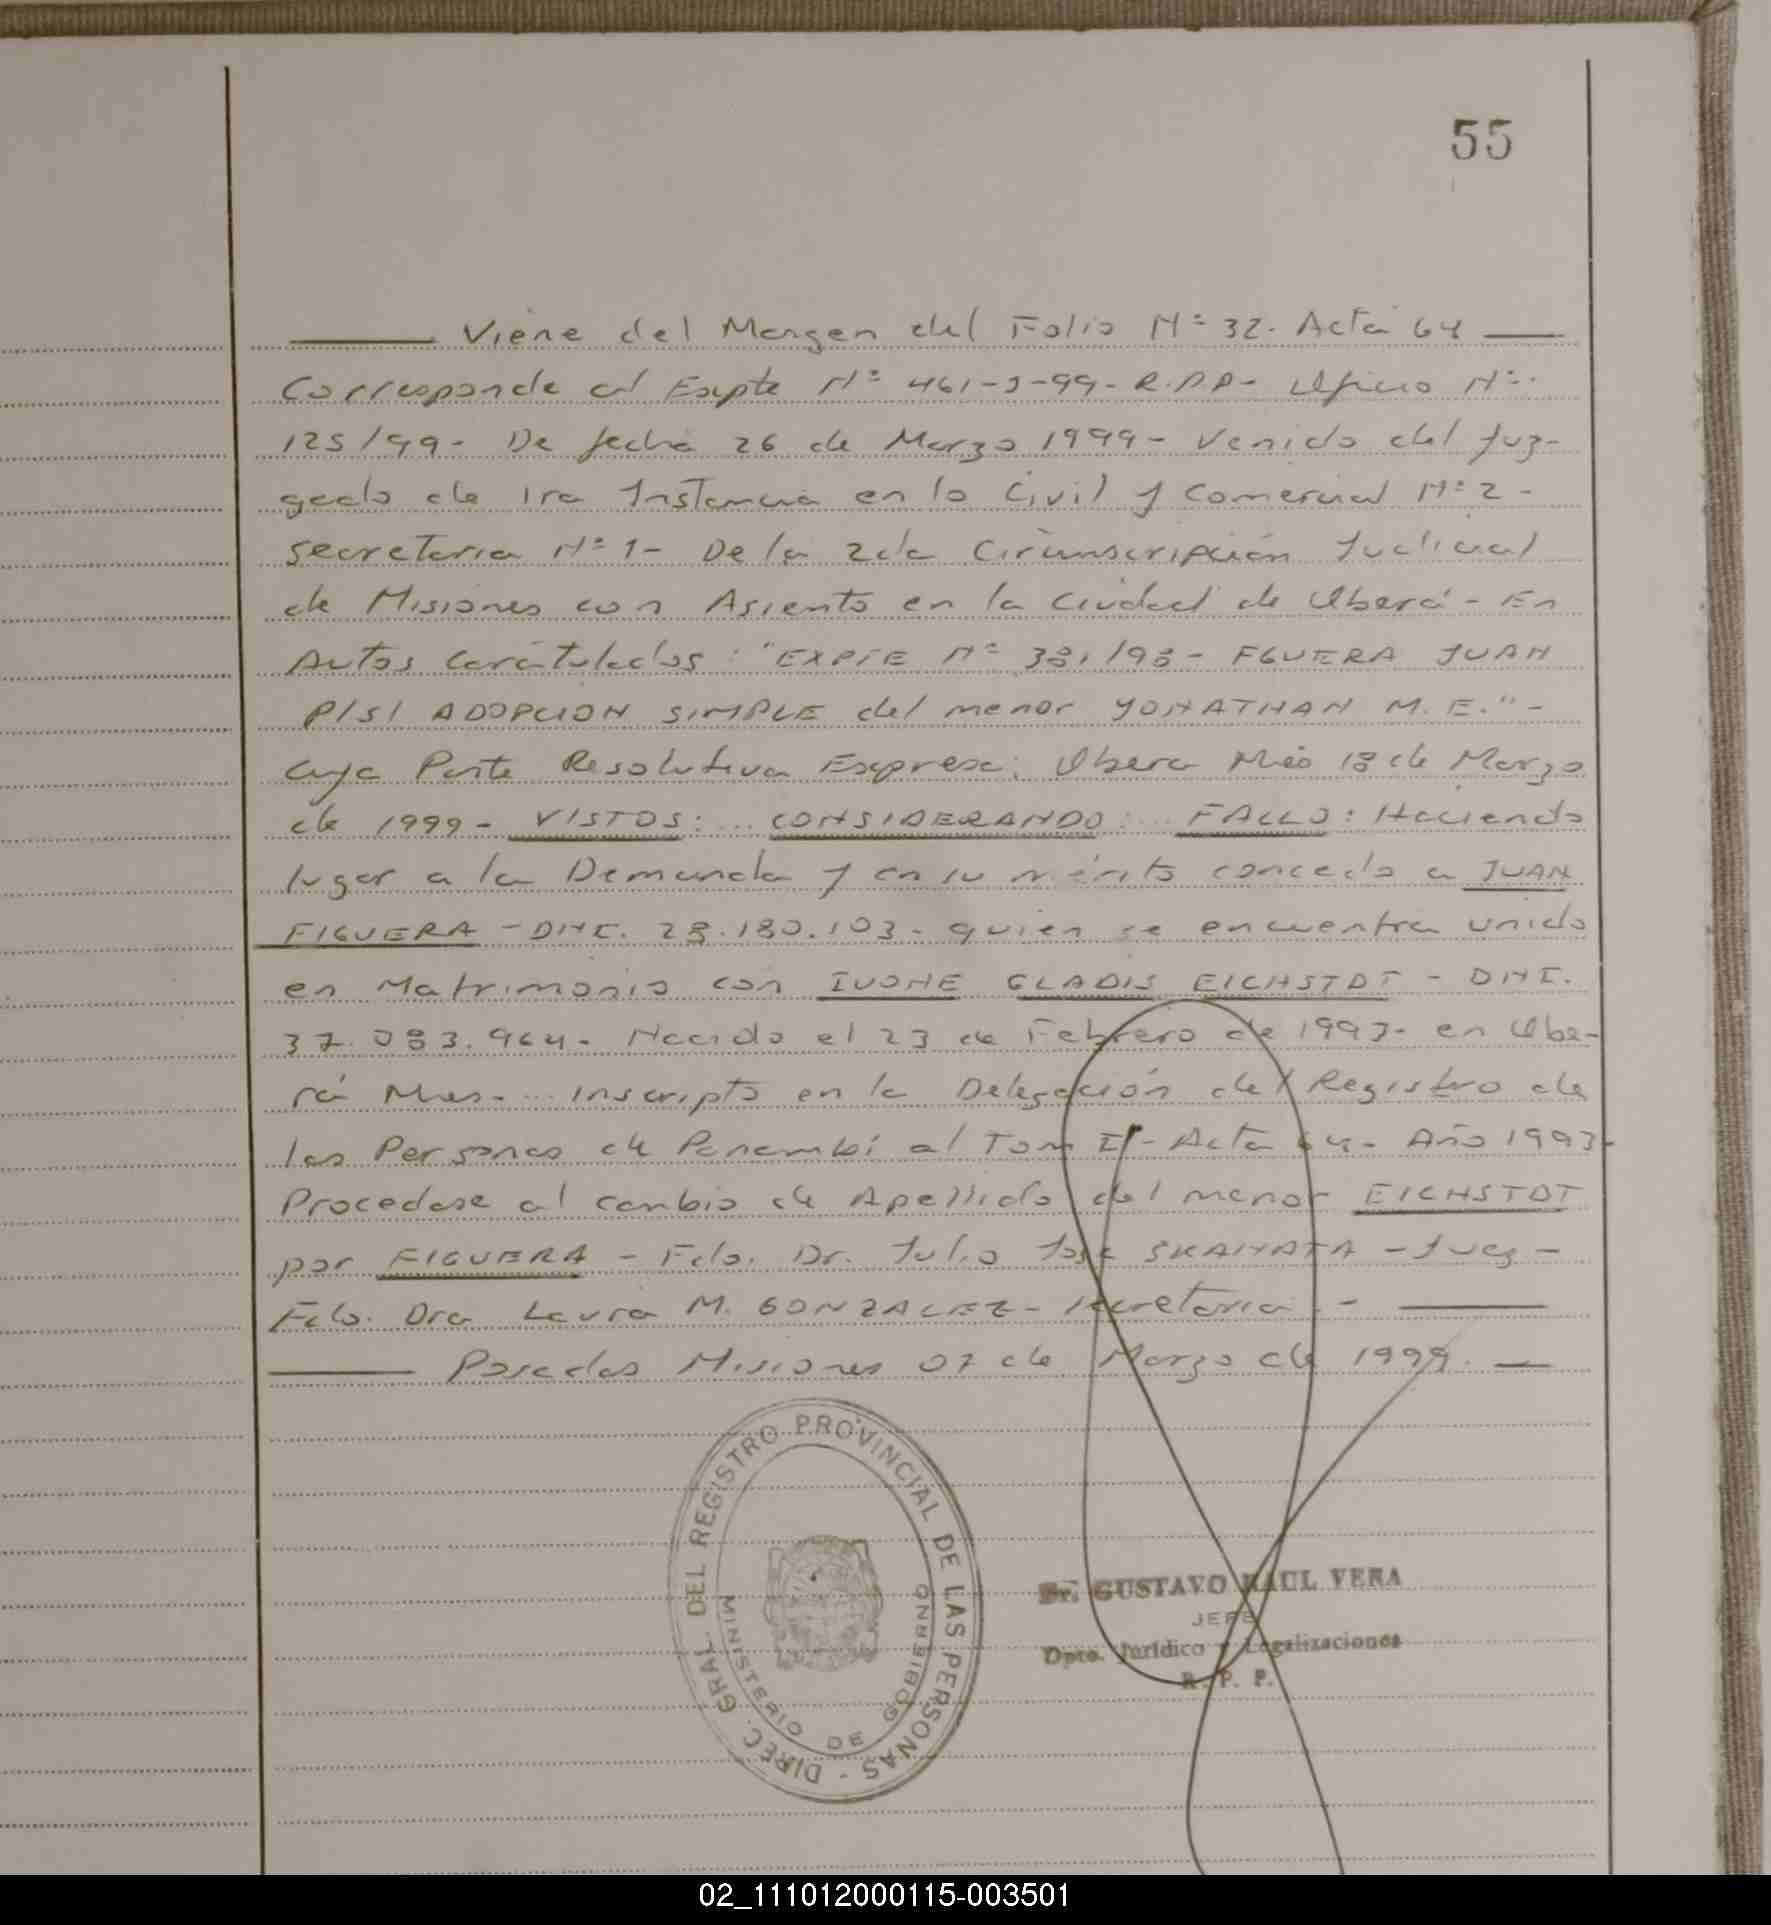 55
Viene del Margen del Folio Nº 32. Acta 64
Corresponde al Expte Nº 461-J-99- R.P.P- Oficio Nº
125/99- De fecha 26 de Marzo 1999- Venido del Juz-
gado de 1ra Instancia en lo Civil y Comercial Nº 2-
Secretaria Nº 1- De la 2da Circunscripción Judicial
de Misiones con Asiento en la Ciudad de Oberá- En
Autos Carátulados: "EXPTE Nº /98- FGUERA JUAN
P/S/ ADOPCION SIMPLE del menor YONATHAN M.E."-
cuya Parte Resolutiva Expresa: Obera Mnes 18 de Marzo
de 1999- VISTOS:... CONSIDERANDO:... FALLO: Haciendo
lugar a la Demanda y en su mérito concedo a JUAN
FIGUERA -DNI. 28.180.103- quien se encuentra unido
en Matrimonio con IVONE GLADIS EICHSTDT - DNI.
37.083.964- Nacido el 23 de Febrero de 1993- en Obe-
rá Mnes-... inscripto en la Delegación del Registro de
las Personas de Panambí al Tom I- Acta 64- Año 1993-
Procedase al cambio de Apellido del menor EICHSTDT
por FIGUERA - Fdo. Dr. Julio Jose SKANATA - Juez-
Fdo. Dra Laura M. GONZALEZ- Secretaria.-
Posadas Misiones 07 de Marzo de 1999.
DIREC. GRAL. DEL REGISTRO PROVINCIAL DE LAS PERSONAS -
MINISTERIO DE GOBIERNO
Dr. GUSTAVO RAUL VERA
JEFE
Dpto. Jurídico y Legalizaciones
R. P. P.
02_111012000115-003501